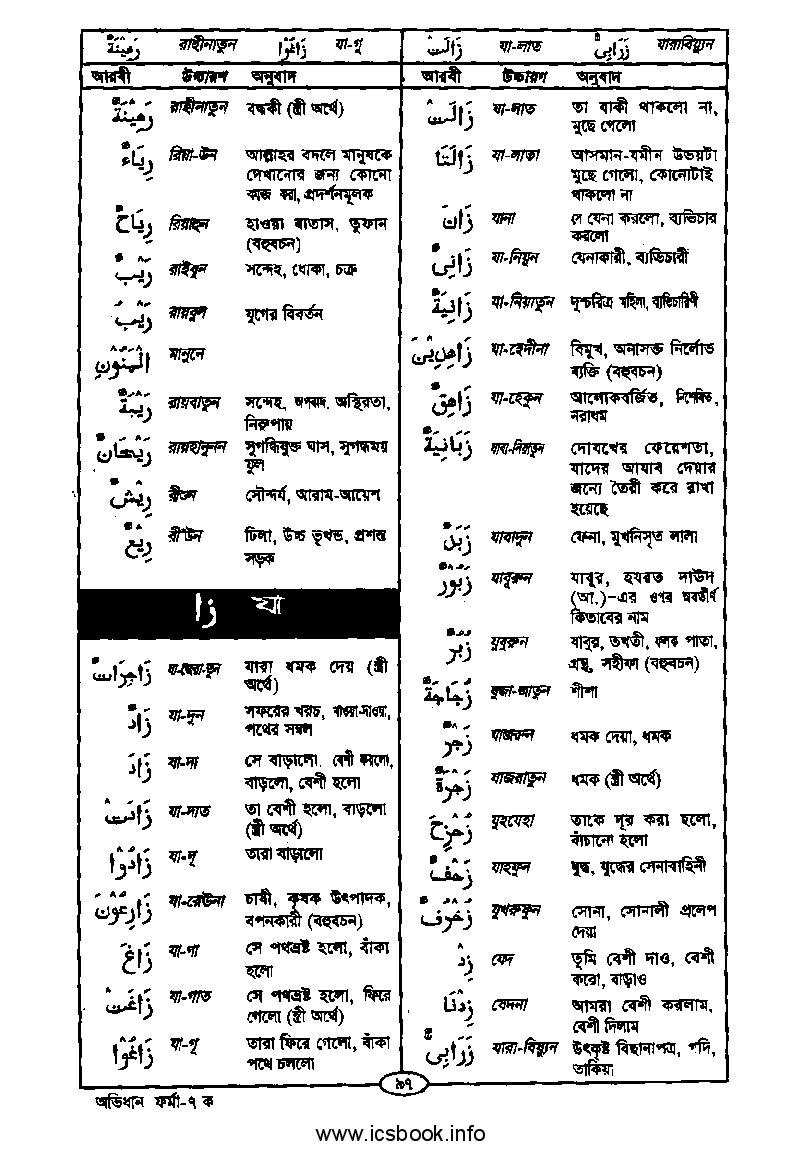 رَهِيْنَةٌ রাহীনাতুন زَاغُوْا যা-গূ
زَالَتْ যা-লাত زَرَابِىُّ যারাবিয়্যুন
আরবী উচ্চারণ অনুবাদ
رَهِيْنَةٌ রাহীনাতুন বন্ধকী (স্ত্রী অর্থে)
رِيَاءٌ রিয়া-উন আল্লাহর বদলে মানুষকে
দেখানোর জন্য কোনো
কাজ করা, প্রদর্শনমূলক
رِيَاحٌ রিয়াহুন হাওয়া বাতাস, তুফান
(বহুবচন)
رَيْبٌ রাইবুন সন্দেহ, ধোকা, চক্র
رَيْبٌ রায়বুল যুগের বিবর্তন
الْمَنُوْنِ মানুনে
رِيْبَةٌ রায়বাতুন সন্দেহ, অপবাদ, অস্থিরতা,
নিরুপায়
رَيْحَانٌ রায়হানুন সুগন্ধিযুক্ত ঘাস, সুগন্ধময়
ফুল
رِيْشٌ রীশুন সৌন্দর্য, আরাম-আয়েশ
رِيْعٌ রীউন টিলা, উচ্চ ভূখন্ড, প্রশস্ত
সড়ক
زا যা
زَاجِرَاتٌ যা-জেরা-তুন যারা ধমক দেয় (স্ত্রী
অর্থে)
زَادٌ যা-দুন সফরের খরচ, খাওয়া-দাওয়া,
পথের সম্বল
زَادَ যা-দা সে বাড়ালো, বেশী করলো,
বাড়লো, বেশী হলো
زَادَتْ যা-দাত তা বেশী হলো, বাড়লো
(স্ত্রী অর্থে)
زَادُوْا যা-দূ তারা বাড়ালো
زَارِعُوْنَ যা-রেউনা চাষী, কৃষক উৎপাদক,
বপনকারী (বহুবচন)
زَاغَ যা-গা সে পথভ্রষ্ট হলো, বাঁকা
হলো
زَاغَتْ যা-গাত সে পথভ্রষ্ট হলো, ফিরে
গেলো (স্ত্রী অর্থে)
زَاغُوْا যা-গূ তারা ফিরে গেলো, বাঁকা
পথে চললো
আরবী উচ্চারণ অনুবাদ
زَالَتْ যা-লাত তা বাকী থাকলো না,
মুছে গেলো
زَالَتَا যা-লাতা আসমান-যমীন উভয়টা
মুছে গেলো, কোনোটাই
থাকলো না
زَانَ যানা সে যেনা করলো, ব্যভিচার
করলো
زَانِىٌ যা-নিয়ুন যেনাকারী, ব্যভিচারী
زَانِيَةٌ যা-নিয়াতুন দুশ্চরিত্র মহিলা, ব্যভিচারিণী
زَاهِدِيْنَ যা-হেদীনা বিমুখ, অনাসক্ত নির্লোভ
ব্যক্তি (বহুবচন)
زَاهِقٌ যা-হেকুন আলোকবর্জিত, নিশ্চেষ্ট,
নরাধম
زَبَانِيَةٌ যাবা-নিয়াতুন দোযখের ফেরেশতা,
যাদের আযাব দেয়ার
জন্যে তৈরী করে রাখা
হয়েছে
زَبَدٌ যাবাদুন ফেনা, মুখনিসৃত লালা
زَبُوْرٌ যাবুরুন যাবুর, হযরত দাউদ
(আ.)-এর ওপর অবতীর্ণ
কিতাবের নাম
زُبُرٌ যুবুরুন যাবুর, তখতী, ফলক পাতা,
গ্রন্থ, সহীফা (বহুবচন)
زُجَاجَةٌ যুজা-জাতুন শীশা
زَجْرٌ যাজরুন ধমক দেয়া, ধমক
زَجْرَةٌ যাজরাতুন ধমক (স্ত্রী অর্থে)
زُحْزِحَ যুহযেহা তাকে দূর করা হলো,
বাঁচানো হলো
زَحْفٌ যাহফুন যুদ্ধ, যুদ্ধের সেনাবাহিনী
زُخْرُفٌ যুখরুফুন সোনা, সোনালী প্রলেপ
দেয়া
زِدْ যেদ তুমি বেশী দাও, বেশী
করো, বাড়াও
زِدْنَا যেদনা আমরা বেশী করলাম,
বেশী দিলাম
زَرَابِىُّ যারা-বিয়্যুন উৎকৃষ্ট বিছানাপত্র, গদি,
তাকিয়া
৯৭
অভিধান ফর্মা-৭ ক
www.icsbook.info